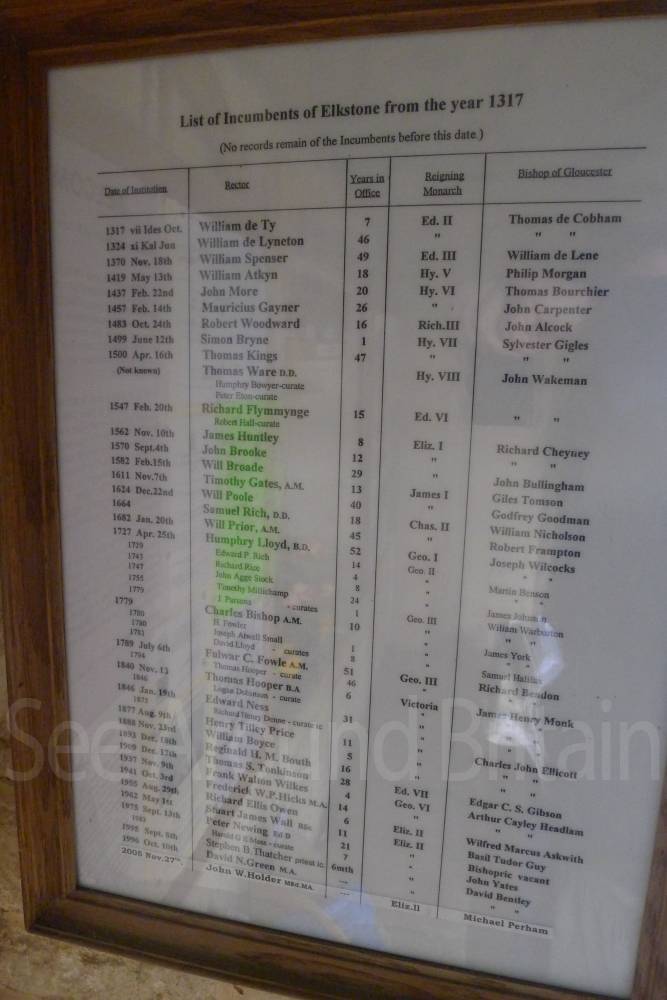 List of Incumbents of Elkstone from the year 1317
(No records remain of the Incumbents before this date.)
Date of Institution Rector Years in Office Reigning Monarch Bishop of Gloucester
1317 vii Ides Oct. William de Ty 7 Ed. II Thomas de Cobham
1324 xi Kal Jun William de Lyneton 46 " " "
1370 Nov. 18th William Spenser 49 Ed. III William de Lene
1419 May 13th William Atkyn 18 Hy. V Philip Morgan
1437 Feb. 22nd John More 20 Hy. VI Thomas Bourchier
1457 Feb. 14th Mauricius Gayner 26 " John Carpenter
1483 Oct. 24th Robert Woodward 16 Rich.III John Alcock
1499 June 12th Simon Bryne 1 Hy. VII Sylvester Gigles
1500 Apr. 16th Thomas Kings 47 " " "
(Not known) Thomas Ware D.D. Hy. VIII John Wakeman
Humphry Bowyer-curate
Peter Eton-curate
1547 Feb. 20th Richard Flymmynge 15 Ed. VI " "
Robert Hall-curate
1562 Nov. 10th James Huntley 8 Eliz. I Richard Cheyney
1570 Sept.4th John Brooke 12 " " "
1582 Feb.15th Will Broade 29 " John Bullingham
1611 Nov.7th Timothy Gates, A.M. 13 James I Giles Tomson
1624 Dec.22nd Will Poole 40 " Godfrey Goodman
1664 Samuel Rich, D.D. 18 Chas. II William Nicholson
1682 Jan. 20th Will Prior, A.M. 45 " Robert Frampton
1727 Apr. 25th Humphry Lloyd, B.D. 52 Geo. I Joseph Wilcocks
1729 Edward P. Rich 14 Geo. II " "
1743 Richard Rice 4 "
1747 John Agge Stock 8 " Martin Benson
1755 Timothy Millichamp 24 " " "
1779 J. Parsons - curates 1 " James Johnson
1779 Charles Bishop A.M. 10 Geo. III William Warburton
1780 H. Fowler "
1780 Joseph Atwell Small 1 " James York
1781 David Lloyd - curates 8 "
1789 July 6th Fulwar C. Fowle A.M. 51 " Samuel Halifax
1794 Thomas Hooper - curate 46 Geo. III Richard Beadon
1840 Nov. 13 Thomas Hooper B.A 6 Victoria James Henry Monk
1846 - curate
1846 Jan. 19th Edward Ness 31 " " "
1875 Richard Henry Donne - curate ic
1877 Aug. 9th Henry Tilley Price 11 " Charles John Ellicott
1888 Nov. 23rd William Boyce 5 " " "
1893 Dec. 18th Reginald H. M. Bouth 16 " " "
1909 Dec. 17th Thomas S. Tonkinson 28 Ed. VII Edgar C. S. Gibson
1937 Nov. 9th Frank Walton Wilkes 4 Geo. VI Arthur Cayley Headlam
1941 Oct. 3rd Frederick W.P.Hicks M.A. 14 " " "
1955 Aug. 29th Richard Ellis Owen 6 Eliz. II Wilfred Marcus Askwith
1962 May 1st Stuart James Wall BSc 11 Eliz. II Basil Tudor Guy
1975 Sept. 13th Peter Newing Ed D 21 " Bishopric vacant
1983 - curate 7 " John Yates
1995 Sept. 8th Stephen B.Thatcher priest ic. 6mth " David Bentley
1996 Oct. 10th David N.Green M.A. --- " " "
2005 Nov.27th John W.Holder MEd.MA. --- Eliz.II Michael Perham
See Around Britain